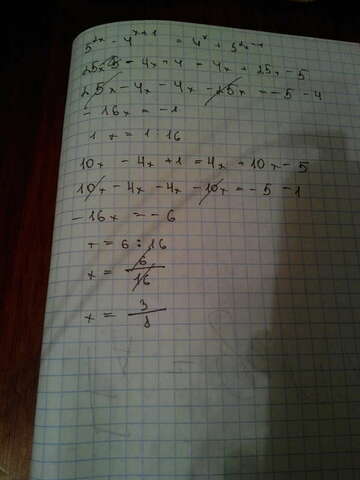 5^2x - 4^x+1 = 4^x + 5^2x-1
25x 5 - 4x + 4 = 4x + 25x - 5
25x - 4x - 4x - 25x = -5 - 4
- 16x = -1
1 x = 1 16
10x - 4x + 1 = 4x + 10x - 5
10x - 4x - 4x - 10x = - 5 - 1
- 16x = - 6
x = 6 : 16
x = 6/16
x = 3/8